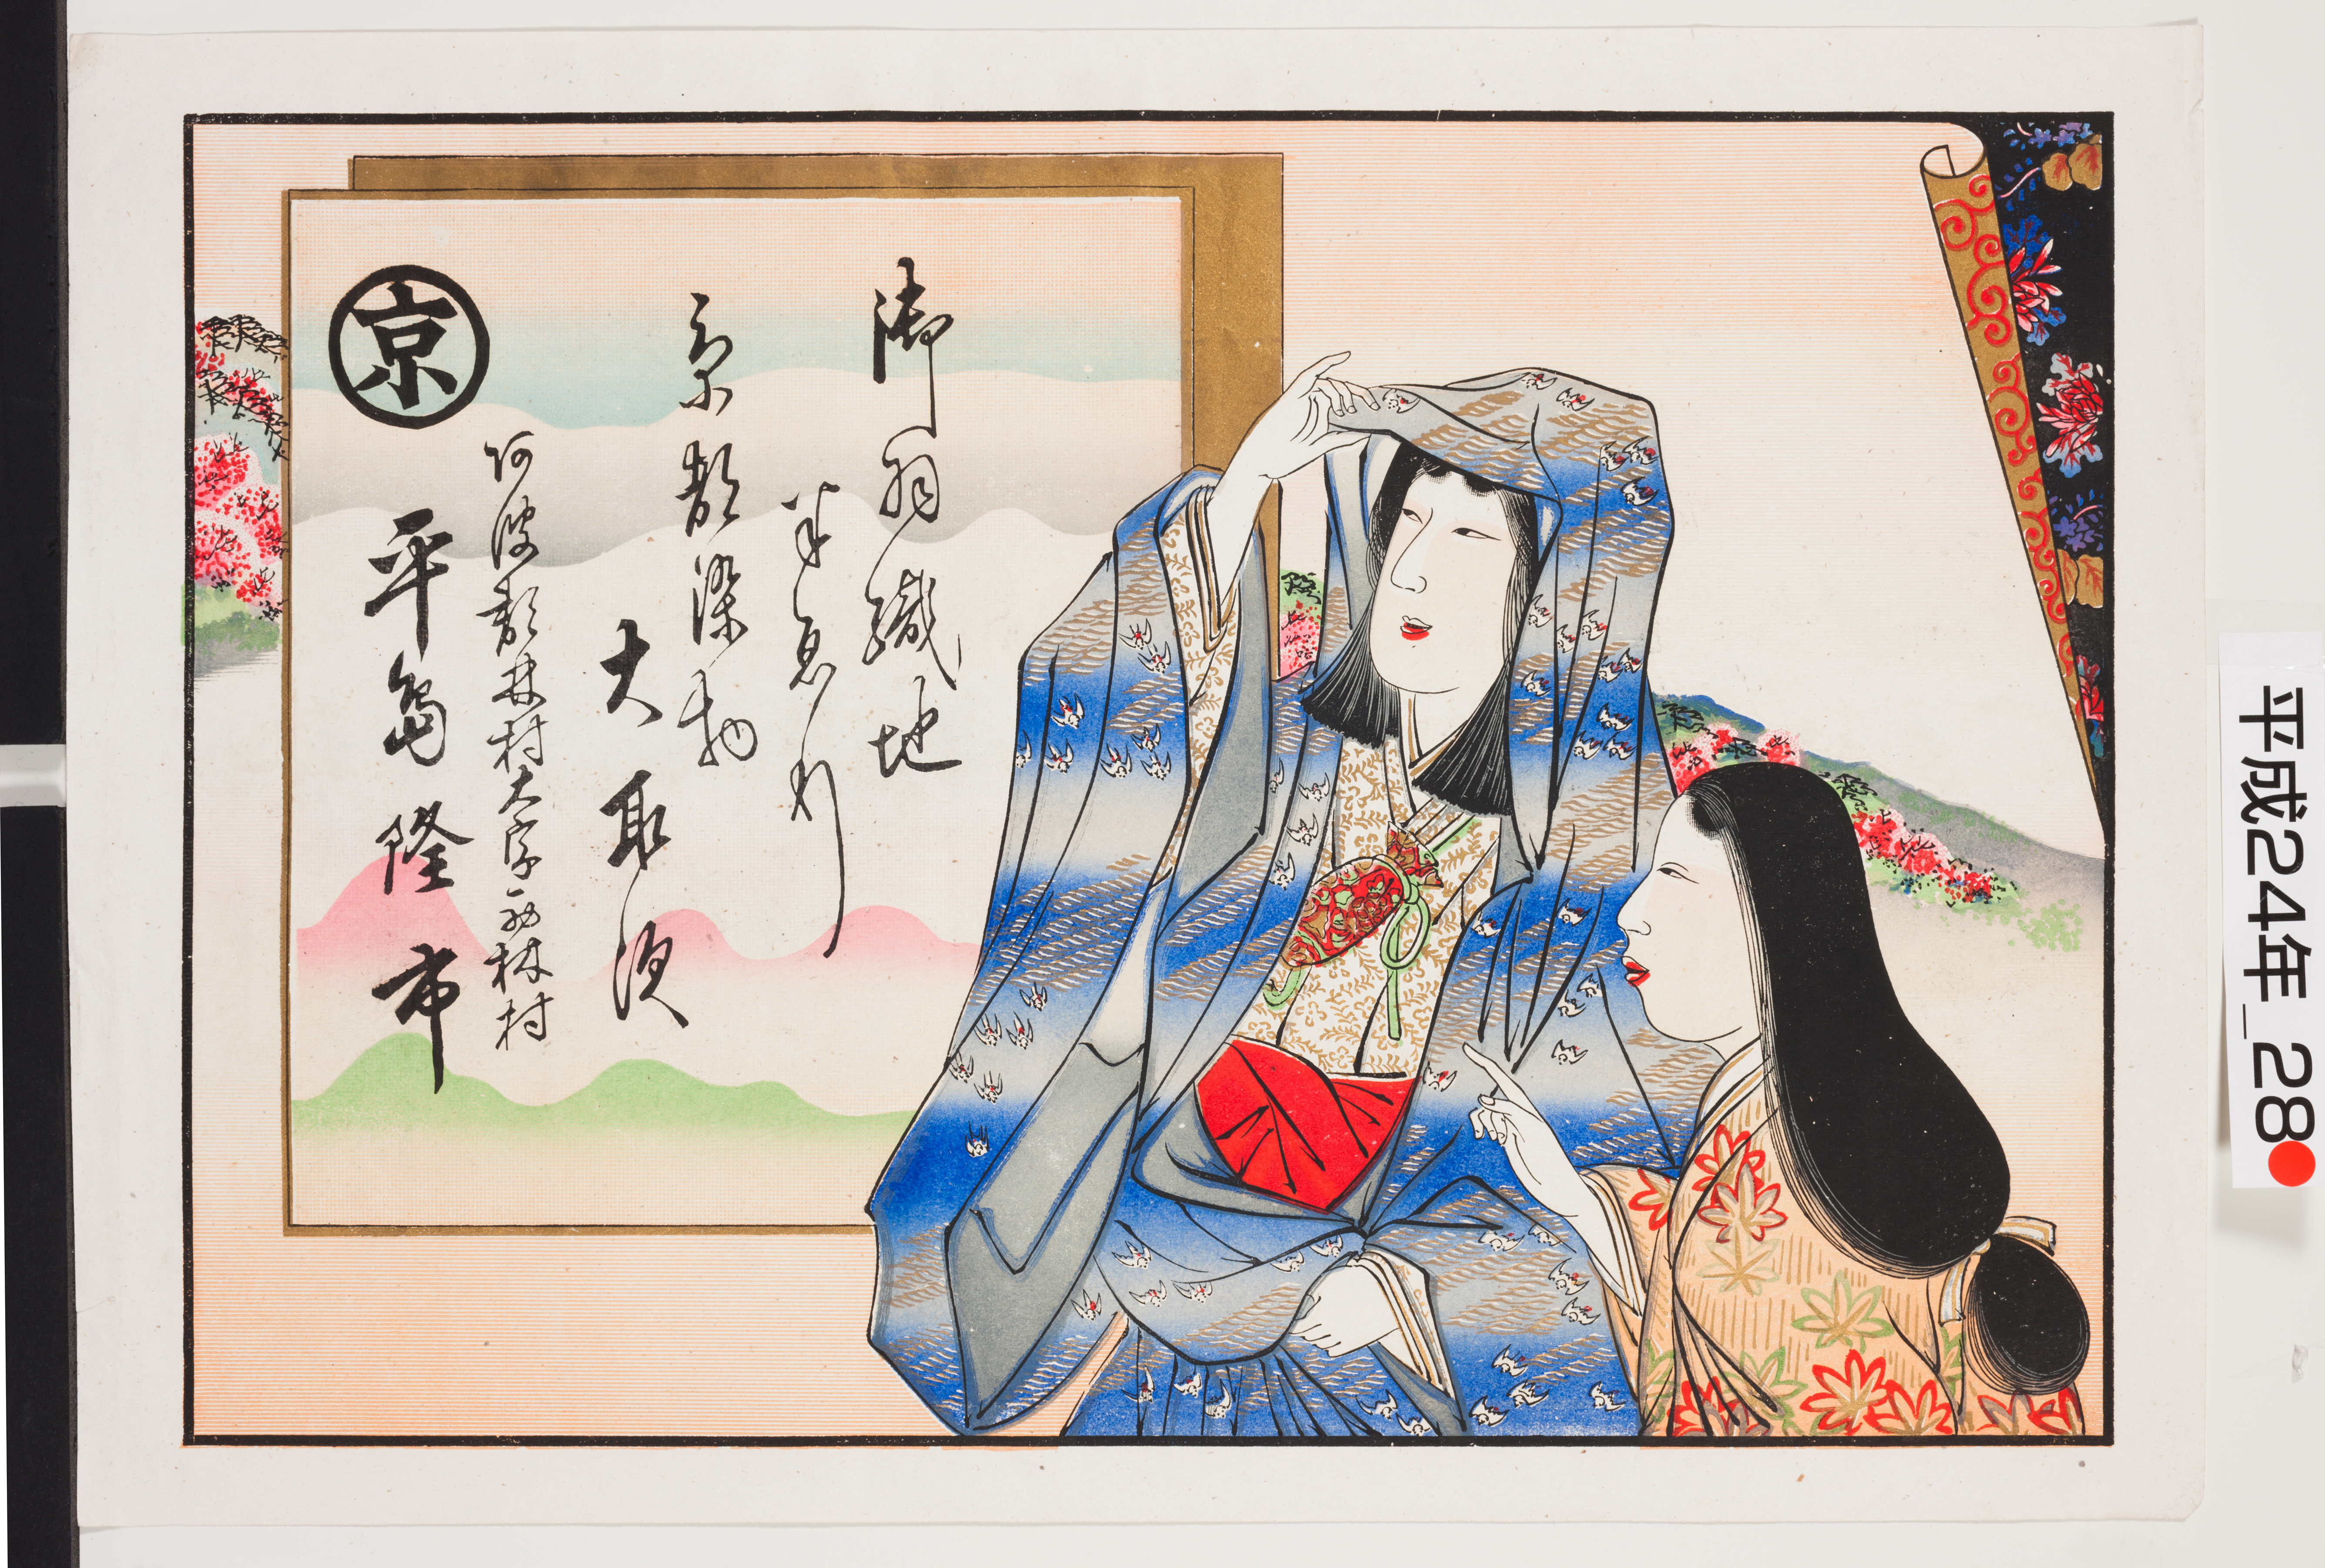 御羽織地
半ゑり
京都染物
大取次
阿波郡林村大字西林村
京
平島隆市
平成24年_28